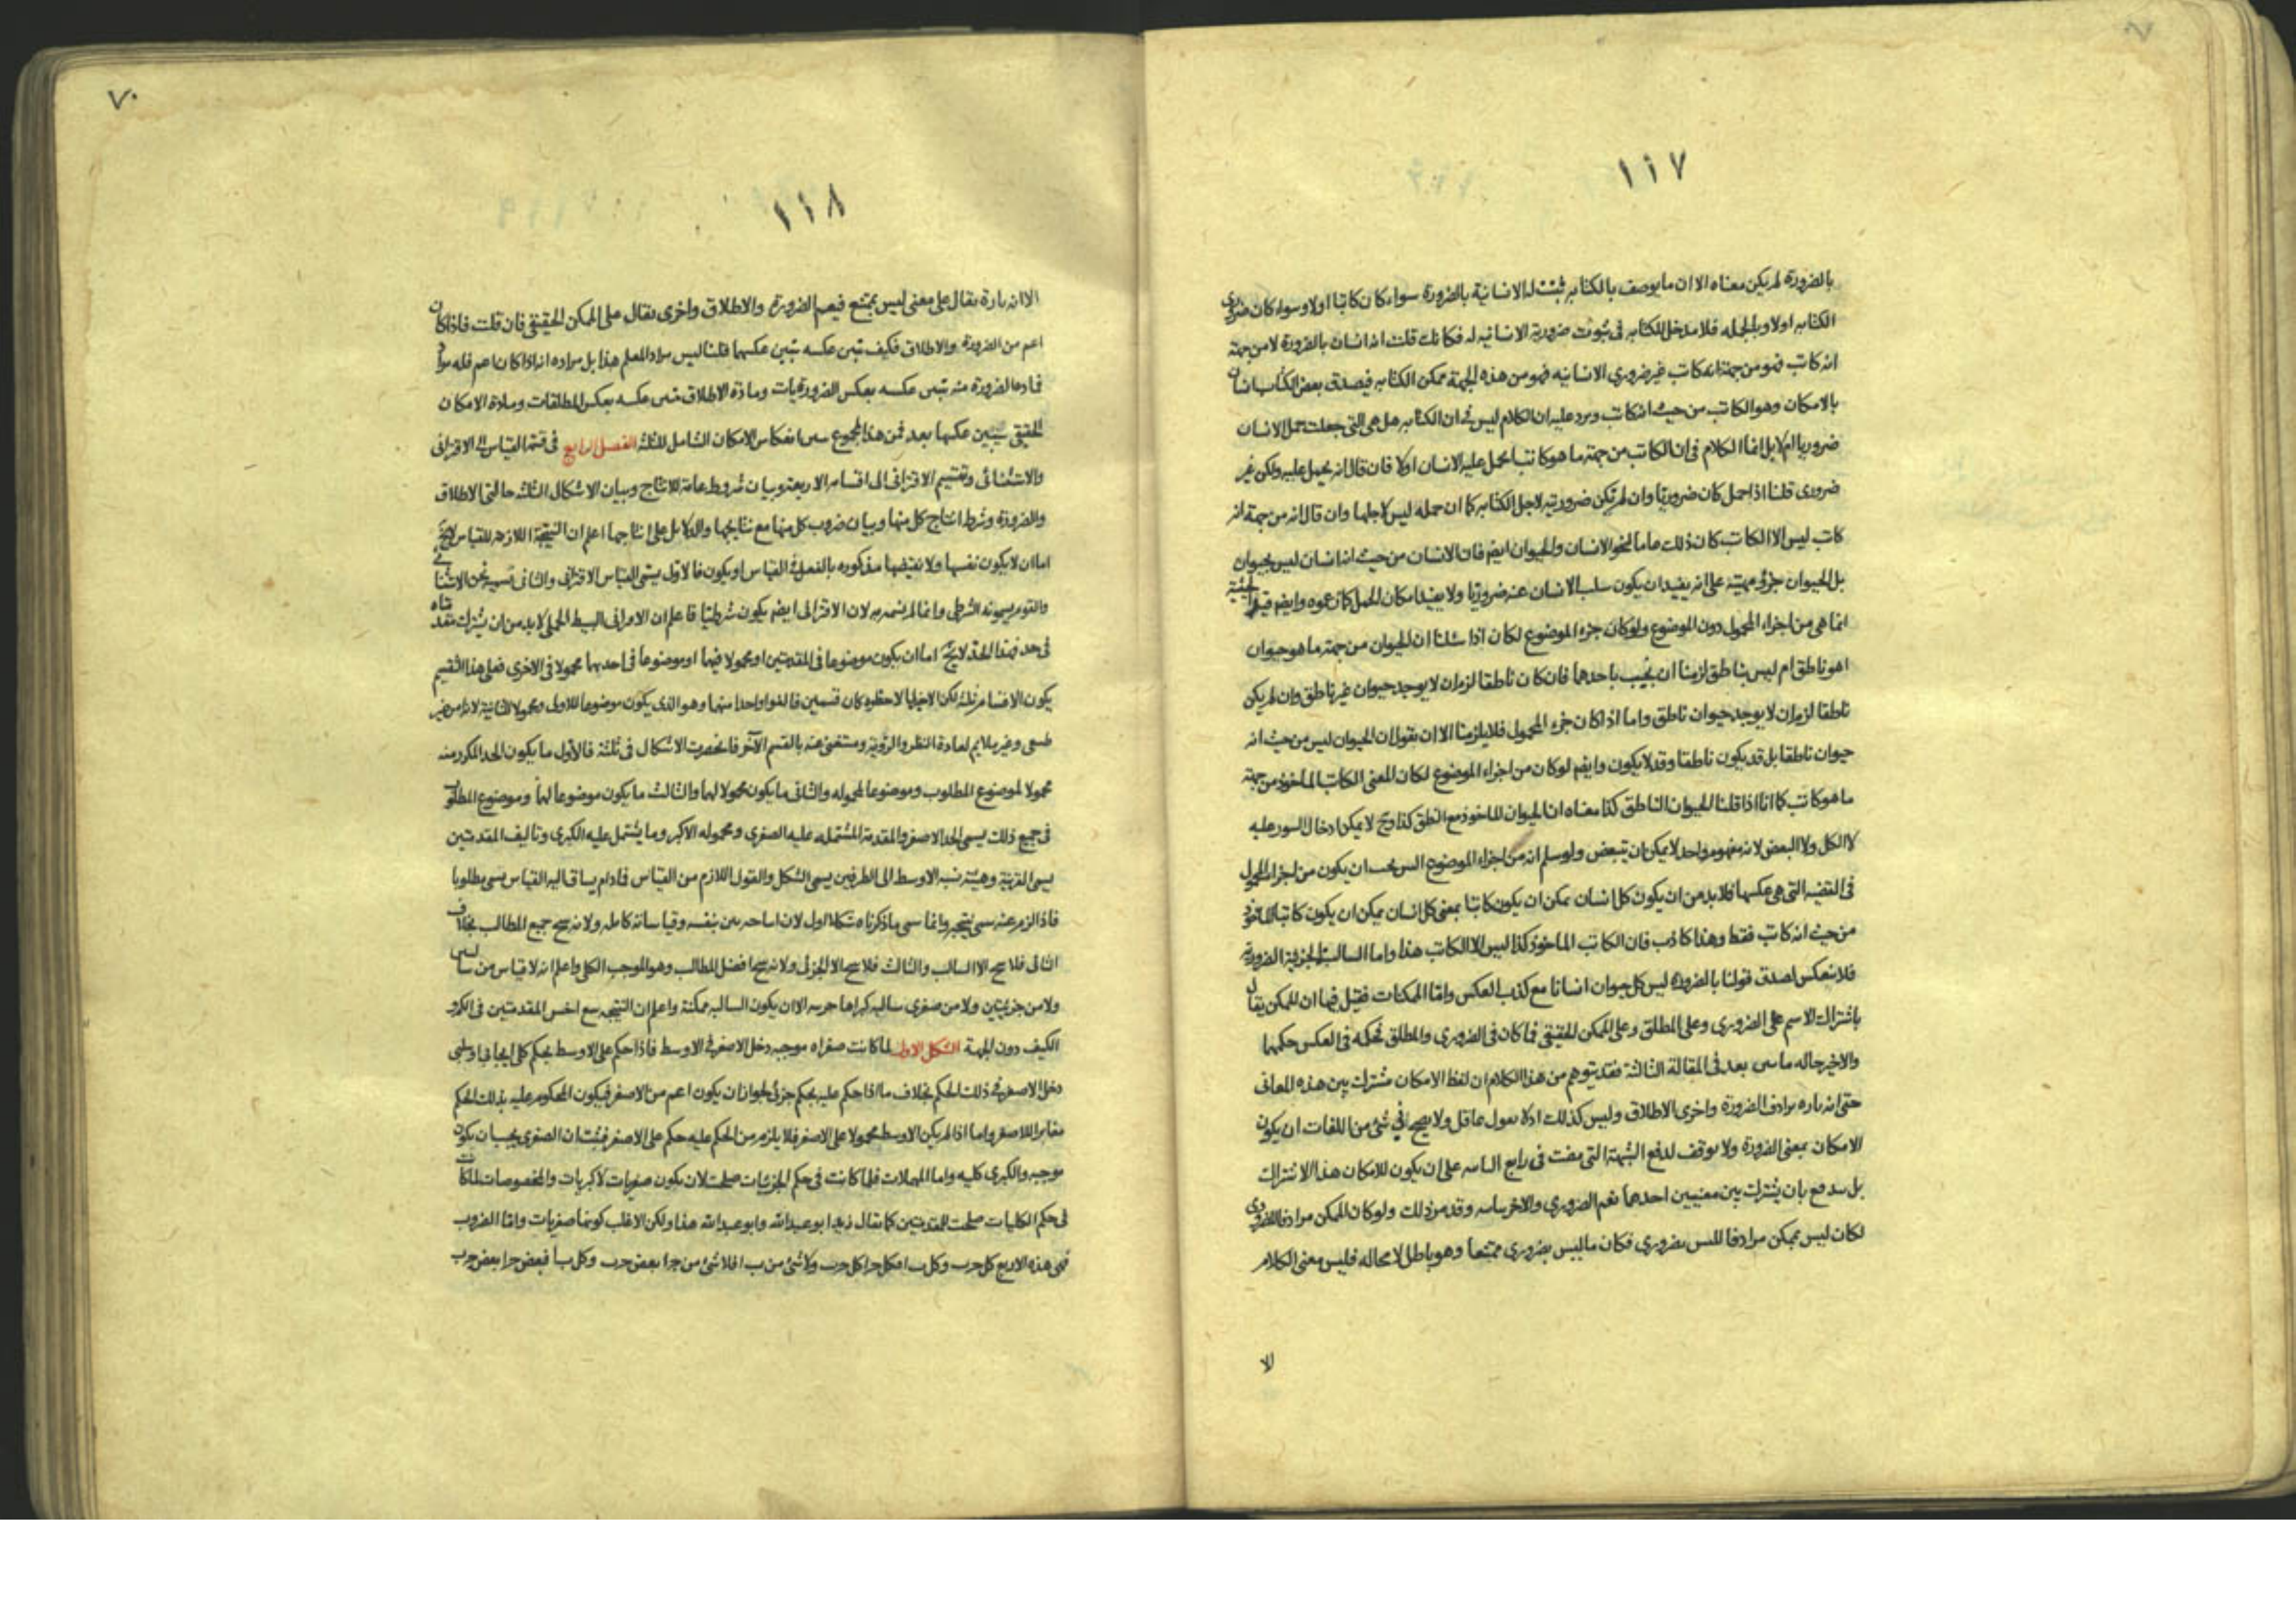 ١١٧
بالضرورة لم يكن معناه الا ان ما يوصف بالكتابه ثبتت له الانسانية بالضرورة سواء كان كاتبا اولا وسواء كان ضروری
الكتابه اولا وبالجمله فلا مدخل للكتابه فی ثبوت ضرورية الانسانيه له فكانك قلت انه انسان بالضرورة لا من جهة
انه كاتب فهو من جهة انه كاتب غير ضروري الانسانيه فهو من هذه الجهة ممكن الكتابه فيصدق بعض الكتاب انسان
بالامكان وهو الكاتب من حيث انه كاتب ويرد عليه ان الكلام ليس فی ان الكتابه هل هی التی جعلت حمل الانسان
ضروريا ام لا بل انما الكلام فی ان الكاتب من جهة ما هو كاتب ايحمل عليه الانسان اولا فان قال انه يحمل عليه ولكن غير
ضروری قلنا اذا حمل كان ضروريا وان لم تكن ضروريته لاجل الكتابه كما ان حمله ليس لاجلها وان قال انه من جهة انه
كاتب ليس الا الكاتب كان ذلك عاما لنحو الانسان والحيوان ايضا فان الانسان من حيث انه انسان ليس بحيوان
بل الحيوان جزء مهيته على انه يفيد ان يكون سلب الانسان عنه ضروريا ولا يفيد امكان الحمل كما زعموه وايضا قيد الحيثية
انما هی من اجزاء المحمول دون الموضوع ولو كان جزء الموضوع لكان اذا سئلنا ان الحيوان من جهة ما هو حيوان
اهو ناطق ام ليس بناطق لزمنا ان نجيب باحدهما فان كان ناطقا لزم ان لا يوجد حيوان غير ناطق وان لم يكن
ناطقا لزم ان لا يوجد حيوان ناطق واما اذا كان جزء المحمول فلا يلزمنا الا ان نقول ان الحيوان ليس من حيث انه
حيوان ناطقا بل قد يكون ناطقا وقد لا يكون وايضا لو كان من اجزاء الموضوع لكان المعنى الكاتب الماخوذ من جهة
ما هو كاتب كما انا اذا قلنا الحيوان الناطق كذا معناه ان الحيوان الماخوذ مع النطق كذا وح لا يمكن ادخال السور عليه
لا الكل ولا البعض لانه مفهوم واحد لا يمكن ان يتبعض ولو سلم انه من اجزاء الموضوع اليس يجب ان يكون من اجزاء المحمول
فی القضيه التی هی عكسها فلا بد من ان يكون كل انسان يمكن ان يكون كاتبا بمعنى كل انسان يمكن ان يكون كاتبا الماخوذ
من حيث انه كاتب فقط وهذا كاذب فان الكاتب الماخوذ كذا ليس الا الكاتب هذا واما السالبة الجزئية الضرورية
فلا تنعكس لصدق قولنا بالضرورة ليس كل حيوان انسانا مع كذب العكس واما الممكنات فقيل فيها ان الممكن يقال
باشتراك الاسم على الضروری وعلى المطلق وعلى الممكن الحقيقی فما كان فی الضروری والمطلق فحكمه فی العكس حكمها
والاخير حاله ما بعد فی المقالة الثالثة فقد يتوهم من هذا الكلام ان لفظ الامكان مشترك بين هذه المعانی
حتى انه تاره يرادف الضرورة واخری الاطلاق وليس كذلك اذ لا يقول عاقل ولا يصح فی شئ من اللغات ان يكون
الامكان بمعنى الضرورة ولا يتوقف لدفع الشبهة التی مضت فی رابع على ان يكون للامكان هذا الاشتراك
بل يندفع بان يشترك بين معنيين احدهما يعم الضروری والاخر يباينه وقد مر ذلك ولو كان الممكن مرادفا للضروری
لكان ليس بممكن مرادفا لليس بضروری فكان ما ليس بضروری ممتنعا وهو باطل لا محاله فليس معنى الكلام
الا
٧٠
١١٨
الا انه تارة يقال على معنى ليس بممتنع فيعم الضرورة والاطلاق واخری يقال على الممكن الحقيقی فان قلت فاذا كان
اعم من الضرورة والاطلاق فكيف تبين عكسه تبين عكسهما قلنا ليس مراد المعلم هذا بل مراده انه اذا كان اعم فله مواد
فمادة الضرورة منه تبين عكسه بعكس الضروريات ومادة الاطلاق تبين عكسه بعكس المطلقات ومادة الامكان
الحقيقی سيبين عكسها بعد فمن هذا المجموع تبين انعكاس الامكان الشامل للثلثة الفصل الرابع فی قسمة القياس الى الاقترانی
والاستثنائی وتقسيم الاقترانی الى اقسامه الاربعة وبيان شروط عامة للانتاج وبيان الاشكال الثلثة حالتی الاطلاق
والضرورة وشرط انتاج كل منها وبيان ضروب كل منها مع نتايجها والدلايل على انتاجها اعلم ان النتيجة اللازمة للقياس لا يخ
اما ان لا يكون نفسها ولا نقيضها مذكوره بالفعل فی القياس او يكون فالاول يسمى القياس الاقترانی والثانی نسميه نحن الاستثنائی
والقوم يسمونه الشرطی وانما لم نسمه به لان الاقترانی ايضا يكون شرطيا فاعلم ان الاقترانی البسيط الحملی لا بد من ان يشترك مقدمتاه
فی حد فهذا الحد لا يخ اما ان يكون موضوعا فی المقدمتين او محمولا فيهما او موضوعا فی احديهما محمولا فی الاخری فعلى هذا التقسيم
يكون الاقسام ثلثة لكن لاحظوه كان قسمين فالغوا واحدا منهما وهو الذی يكون موضوعا للاول ومحمولا للثانية لانه امر غير
طبعی وغير ملايم لعادة النظر والرؤية ومستغنى عنه بالقسم الآخر فانحصرت الاشكال فی ثلثة فالاول ما يكون الحد المكرر منه
محمولا لموضوع المطلوب وموضوعا لمحموله والثانی ما يكون محمولا لهما والثالث ما يكون موضوعا لهما وموضوع المطلوب
فی جميع ذلك يسمى الحد الاصغر والمقدمة المشتمله عليه الصغری ومحموله الاكبر وما يشتمل عليه الكبری وتاليف المقدمتين
يسمى القرينة وهيئة نسبه الاوسط الى الطرفين يسمى الشكل والقول اللازم من القياس فمادام يساق اليه القياس يسمى مطلوبا
فاذا لزم عنه سمی نتيجه وانما سمی ما ذكرناه شكلا اول لان انتاجه بين بنفسه وقياساته كامله ولانه ينتج جميع المطالب بخلاف
الثانی فلا ينتج الا السالب والثالث فلا ينتج الا الجزئی ولانه ينتج افضل المطالب وهو الموجب الكلی واعلم انه لا قياس من سالبتين
ولا من جزئيتين ولا من صغری سالبه كبراها جزئيه الا ان يكون السالبه ممكنة واعلم ان النتيجه تتبع اخس المقدمتين فی الكم و
الكيف دون الجهة الشكل الاول لما كانت صغراه موجبه دخل الاصغر فی الاوسط فاذا حكم على الاوسط بحكم كلی ايجابی او سلبی
دخل الاصغر فی ذلك الحكم بخلاف ما اذا حكم عليه بحكم جزئی لجواز ان يكون اعم من الاصغر فيكون المحكوم عليه بذلك الحكم
مغايرا للاصغر واما اذا لم يكن الاوسط محمولا على الاصغر فلا يلزم من الحكم عليه حكم على الاصغر فثبت ان الصغری يجب ان يكون
موجبه والكبری كليه واما المهملات فلما كانت فی حكم الجزئيات صلحت لان يكون صغريات لا كبريات والمخصوصات لما كانت
فی حكم الكليات صلحت للمقدمتين كما يقال زيد ابو عبد الله وابو عبد الله هذا ولكن الاغلب كونها صغريات واما الضروب
فهی هذه الاربع كل ج ب وكل ب ا فكل ج ا كل ج ب ولا شئ من ب ا فلا شئ من ج ا بعض ج ب وكل ب ا فبعض ج ا بعض ج ب